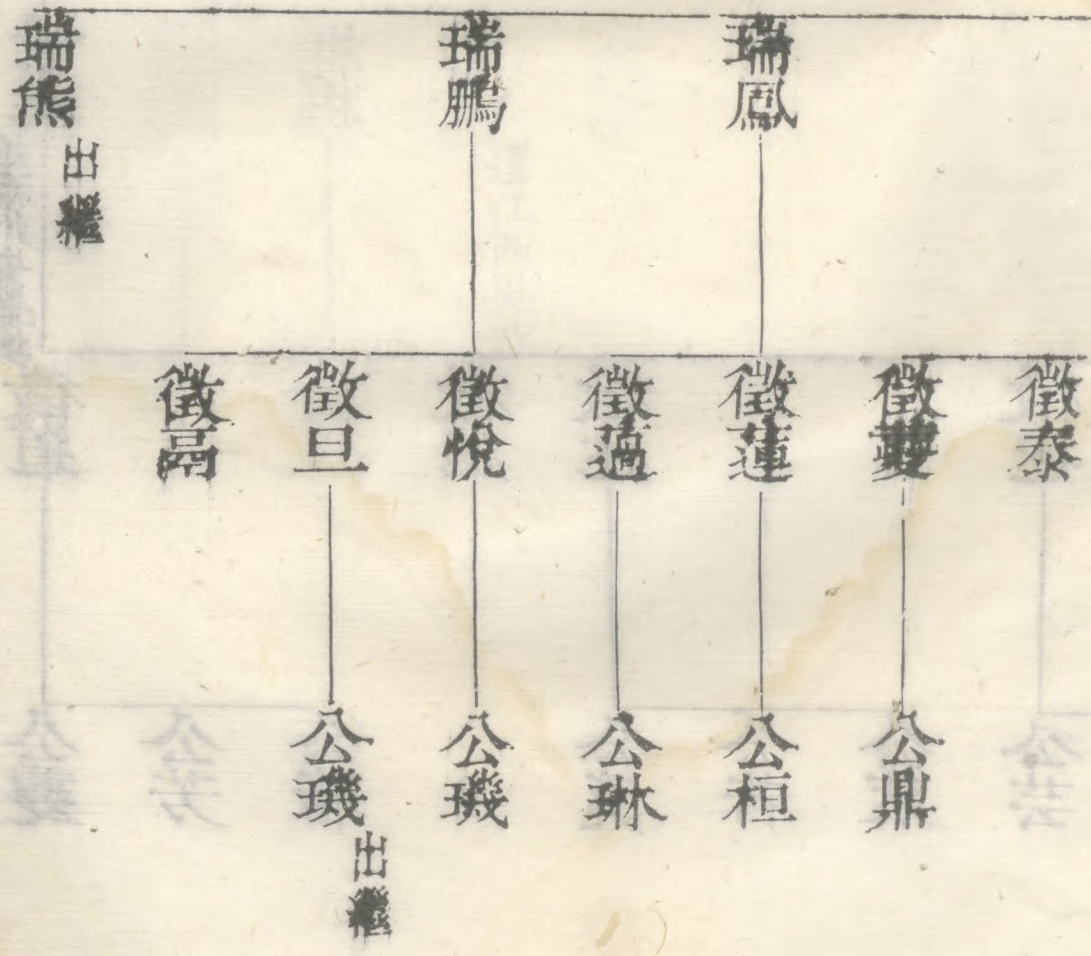 瑞鳳
瑞鵬
瑞熊 出繼
徵泰
徵夔
徵蓮
徵薖
徵悅
徵旦
徵
公鼎
公桓
公琳
公璣
公璣 出繼